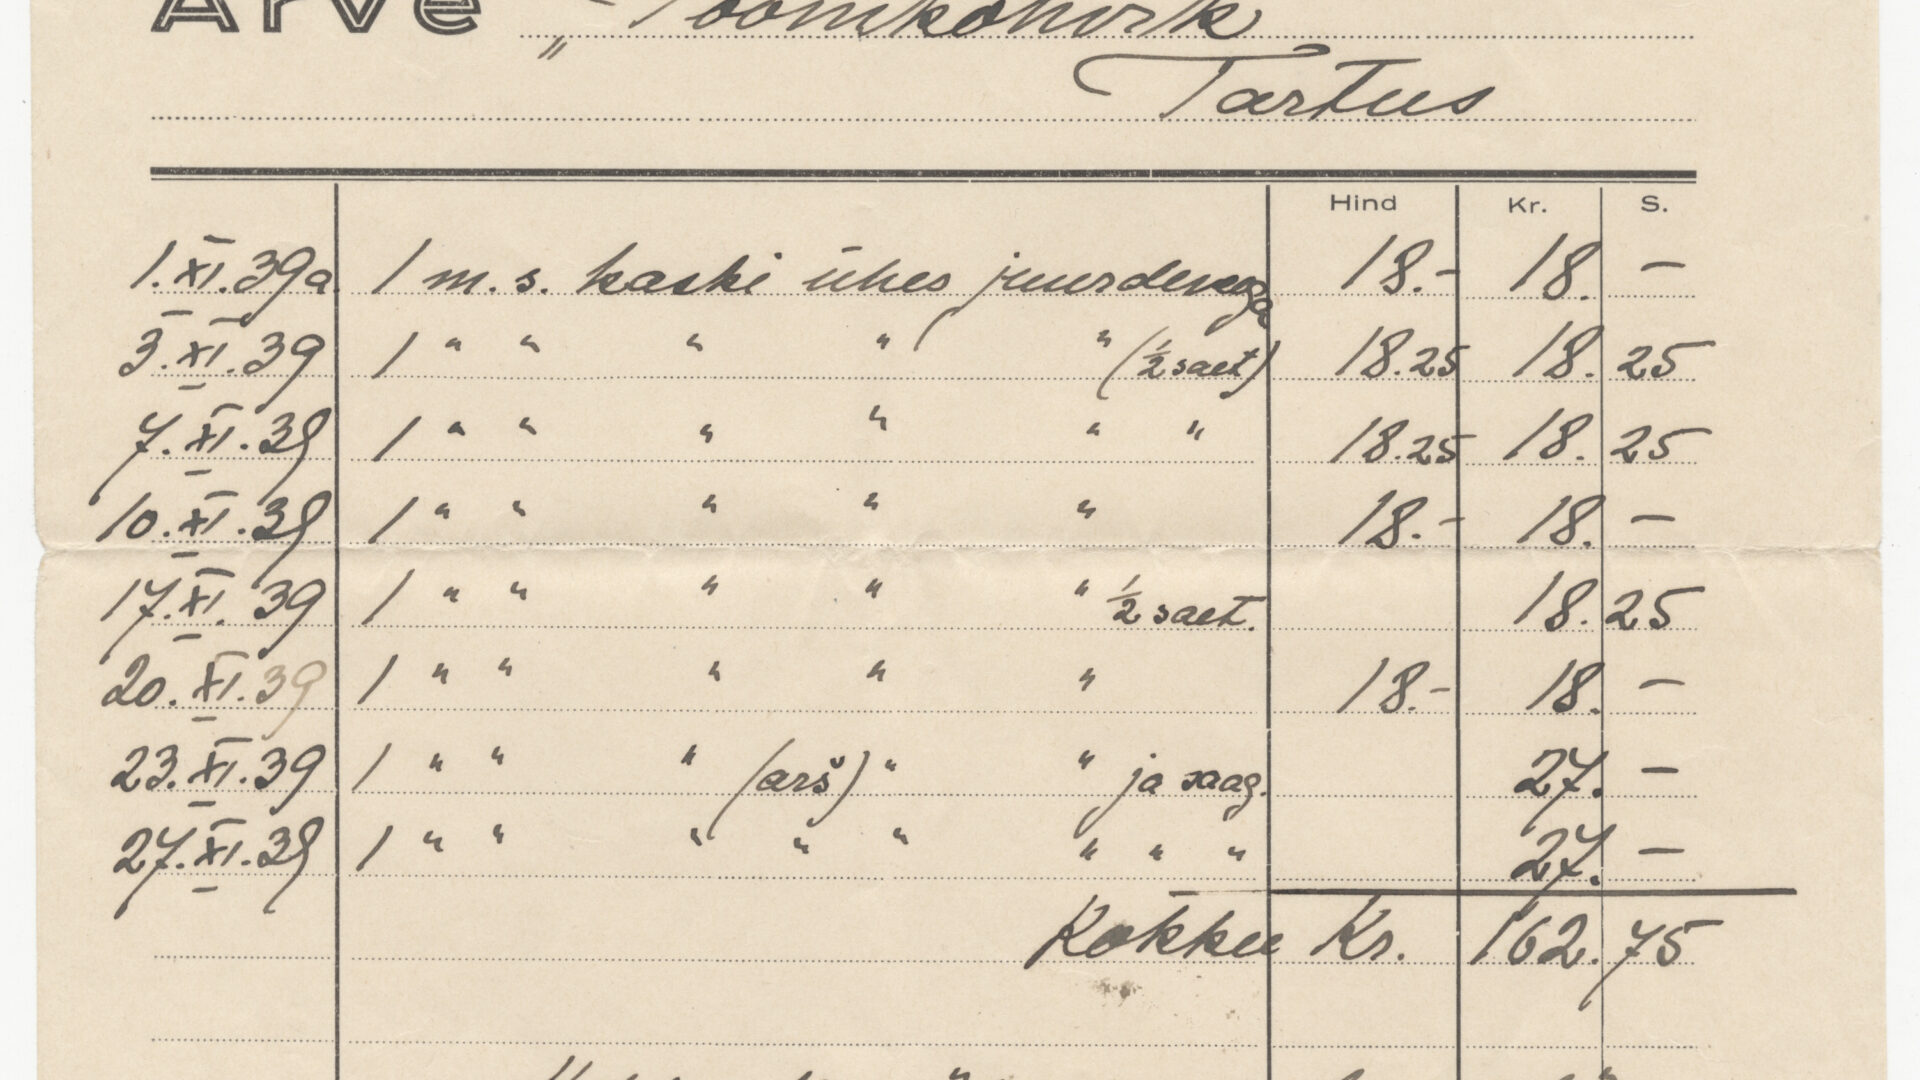 Arve „Toomkohvik
Tartus
Hind Kr. S.
1.XI.39a 1 m. s. kaski ühes juurdeveoga 18.- 18. —
3.XI.39 1 " " " " " (½ saet) 18.25 18. 25
7.XI.39 1 " " " " " " 18.25 18. 25
10.XI.39 1 " " " " " 18.- 18. —
17.XI.39 1 " " " " " ½ saet. 18. 25
20.XI.39 1 " " " " " 18.- 18. —
23.XI.39 1 " " " (arš) " " ja saag. 27. —
27.XI.39 1 " " " " " " " " 27. —
Kokku Kr. 162. 75